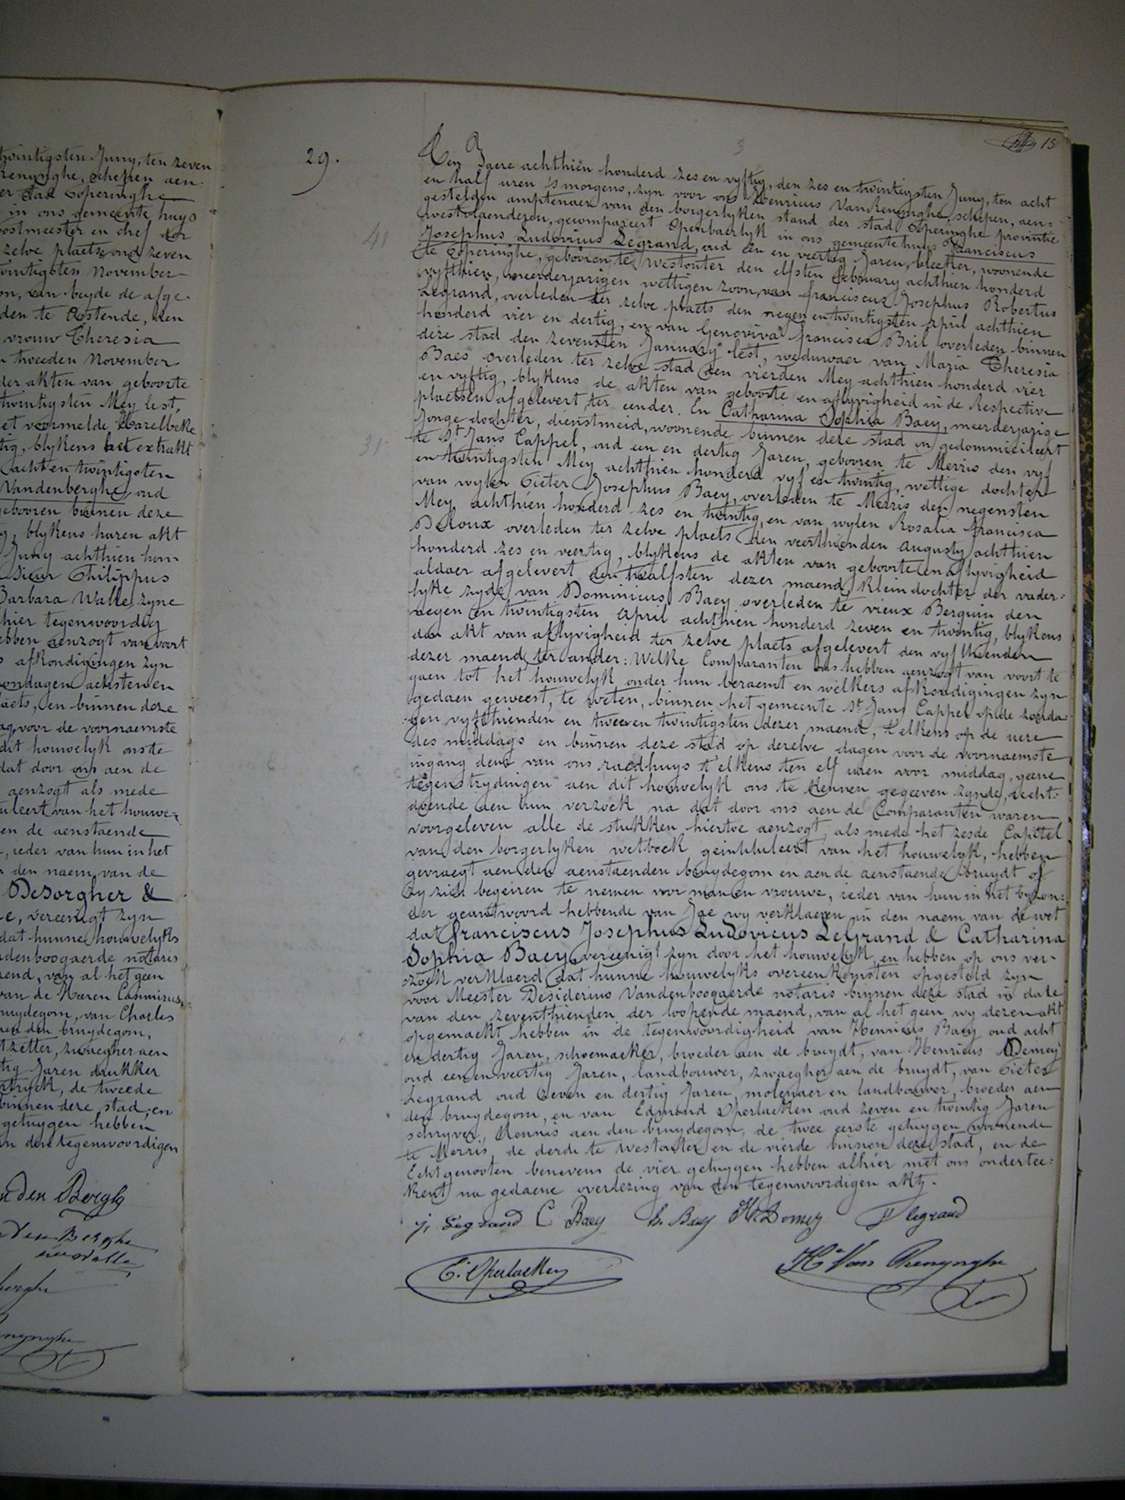 twintigsten Juny, ten zeven
renynghe, schepen aen
der stad Poperinghe
in ons gemeente huys
postmeester en chef der
zelve plaets oud zeven
twintigsten November
van beyde de afge-
den te Ostende, den
vrouw Theresia
tweeden November
der akten van geboorte
twintigsten Mey lest,
vermelde Harelbeke
tig, blykens het extrakt
acht en twintigsten
Vandenberghe, oud
gebooren binnen deze
blykens haren akt
Juny achthien hon-
sieur Philippus
Barbara Walle, zyne
hier tegenwoordig
ebben aenzogt van voort
afkondigingen zyn
zondagen achsten en
plaets, en binnen deze
voor de voornaemste
dit houwelyk onste
dat door ons aen de
aenzogt als mede
tuleert van het houwe-
en de aenstaende
, ieder van hun in het
den naem van de
DeSorgher &
e, vereenigt zyn
dat hunne houwelyks
denboogaerde notaris
rend, van al het geen
van de Heeren Casimirus
bruydegom, van Charles
aen den bruydegom,
tzetter, zwaegher aen
tig Jaren drukker
de tweede
binnen deze stad, en
getuygen hebben
van den tegenwoordigen
Van den Berghe
Van den Berghe
née Walle
29.
15
41
31
Den Jaere achthien honderd zes en vyftig, den zes en twintigsten Juny, ten acht
en half uren 's morgens, zyn voor ons Henricus Vanrenynghe, schepen, aen-
gestelden amptenaer van den borgerlyken stand der stad Poperinghe provintie
westvlaenderen, gecompareert openbaerlyk in ons gemeentehuys Franciscus
Josephus Ludovicus Legrand, oud een en veertig Jaren, bleeker, woonende
te Poperinghe, gebooren te Westouter den elfsten february achthien honderd
vyfthien, meerderjarigen wettigen zoon van franciscus Josephus Robertus
Legrand, overleden ter zelve plaets den negen en twintigsten April achthien
honderd vier en dertig, en van Genoviva francisca Bril overleden binnen
deze stad den zevensten January lest, weduwaer van Maria Theresia
Baes overleden ter zelve stad den vierden Mey achthien honderd vier
en vyftig, blykens de akten van geboorte en aflyvigheid in de respective
plaetsen afgelevert, ter eender. En Catharina Sophia Baey, meerderjarige
Jonge dochter, dienstmeid, woonende binnen deze stad en gedommicileert
te St Jans Cappel, oud een en dertig Jaren, gebooren te Merris den vyf
en twintigsten Mey achthien honderd vyf en twintig, wettige dochter
van wylen Pieter Josephus Baey, overleden te Merris den negensten
Mey achthien honderd zes en twintig, en van wylen Rosalia francisca
DeRoux overleden ter zelve plaets den veerthienden augusty achthien
honderd zes en veertig, blykens de akten van geboorte en aflyvigheid
aldaer afgelevert den twalfsten dezer maend, kleindochter der vader-
lyke zyde van Dominicus Baey overleden te vieux Berquin den
negen en twintigsten April achthien honderd zeven en twintig, blykens
den akt van aflyvigheid ter zelve plaets afgelevert den vyfthienden
dezer maend, ter ander: Welke Comparanten ons hebben aenzogt van voort te
gaen tot het houwelyk onder hun beraemt en welkers afkondigingen zyn
gedaen geweest, te weten, binnen het gemeente St Jans Cappel op de zonda-
gen vyfthienden en twee en twintigsten dezer maend, telkens op de uere
des middags en binnen deze stad op dezelve dagen voor de voornaemste
ingang deur van ons raedhuys t'elkens ten elf uren voor middag, geene
tegenstrydingen aen dit houwelyk ons te kennen gegeeven zynde, recht-
doende aen hun verzoek na dat door ons aen de Comparanten waren
voorgelezen alle de stukken hiertoe aenzogt, als mede het zesde Capitel
van den borgerlyken wetboek geintituleert van het houwelyk, hebben
gevraegt aen den aenstaenden bruydegom en aen de aenstaende bruydt of
zy zich begeiren te nemen voor man en vrouwe, ieder van hun in het byzon-
der geantwoord hebbende van Jae wy verklaeren in den naem van de wet
dat franciscus Josephus Ludovicus Legrand & Catharina
Sophia Baey, vereenigt zyn door het houwelyk, en hebben op ons ver-
zoek verklaerd dat hunne houwelyks overeenkomsten opgesteld zyn
voor Meester Desiderius Vandenboogaerde notaris binnen deze stad in date
van den zeventhienden der loopende maend, van al het geen wy dezen akt
opgemaekt hebben in de tegenwoordigheid van Henricus Baey oud acht
en dertig Jaren, schoemaeker, broeder aen de bruydt, van Henricus Demey
oud een en veertig Jaren, landbouwer, zwaegher aen de bruydt, van Pieter
Legrand oud zeven en dertig Jaren, molenaer en landbouwer, broeder aen
den bruydegom, en van Edmond Operlaeken oud zeven en twintig Jaren
schryver, kennis aen den bruydegom, de twee eerste getuygen woonende
te Merris, de derde te Westouter en de vierde binnen deze stad, en de
Echtgenooten benevens de vier getuygen hebben alhier met ons onderthee-
kent na gedaene overlezing van den tegenwoordigen akt.
j. Legrand C Baey h. Baey H. Demey P legrand
E. Operlaeken
H. Van Renynghe